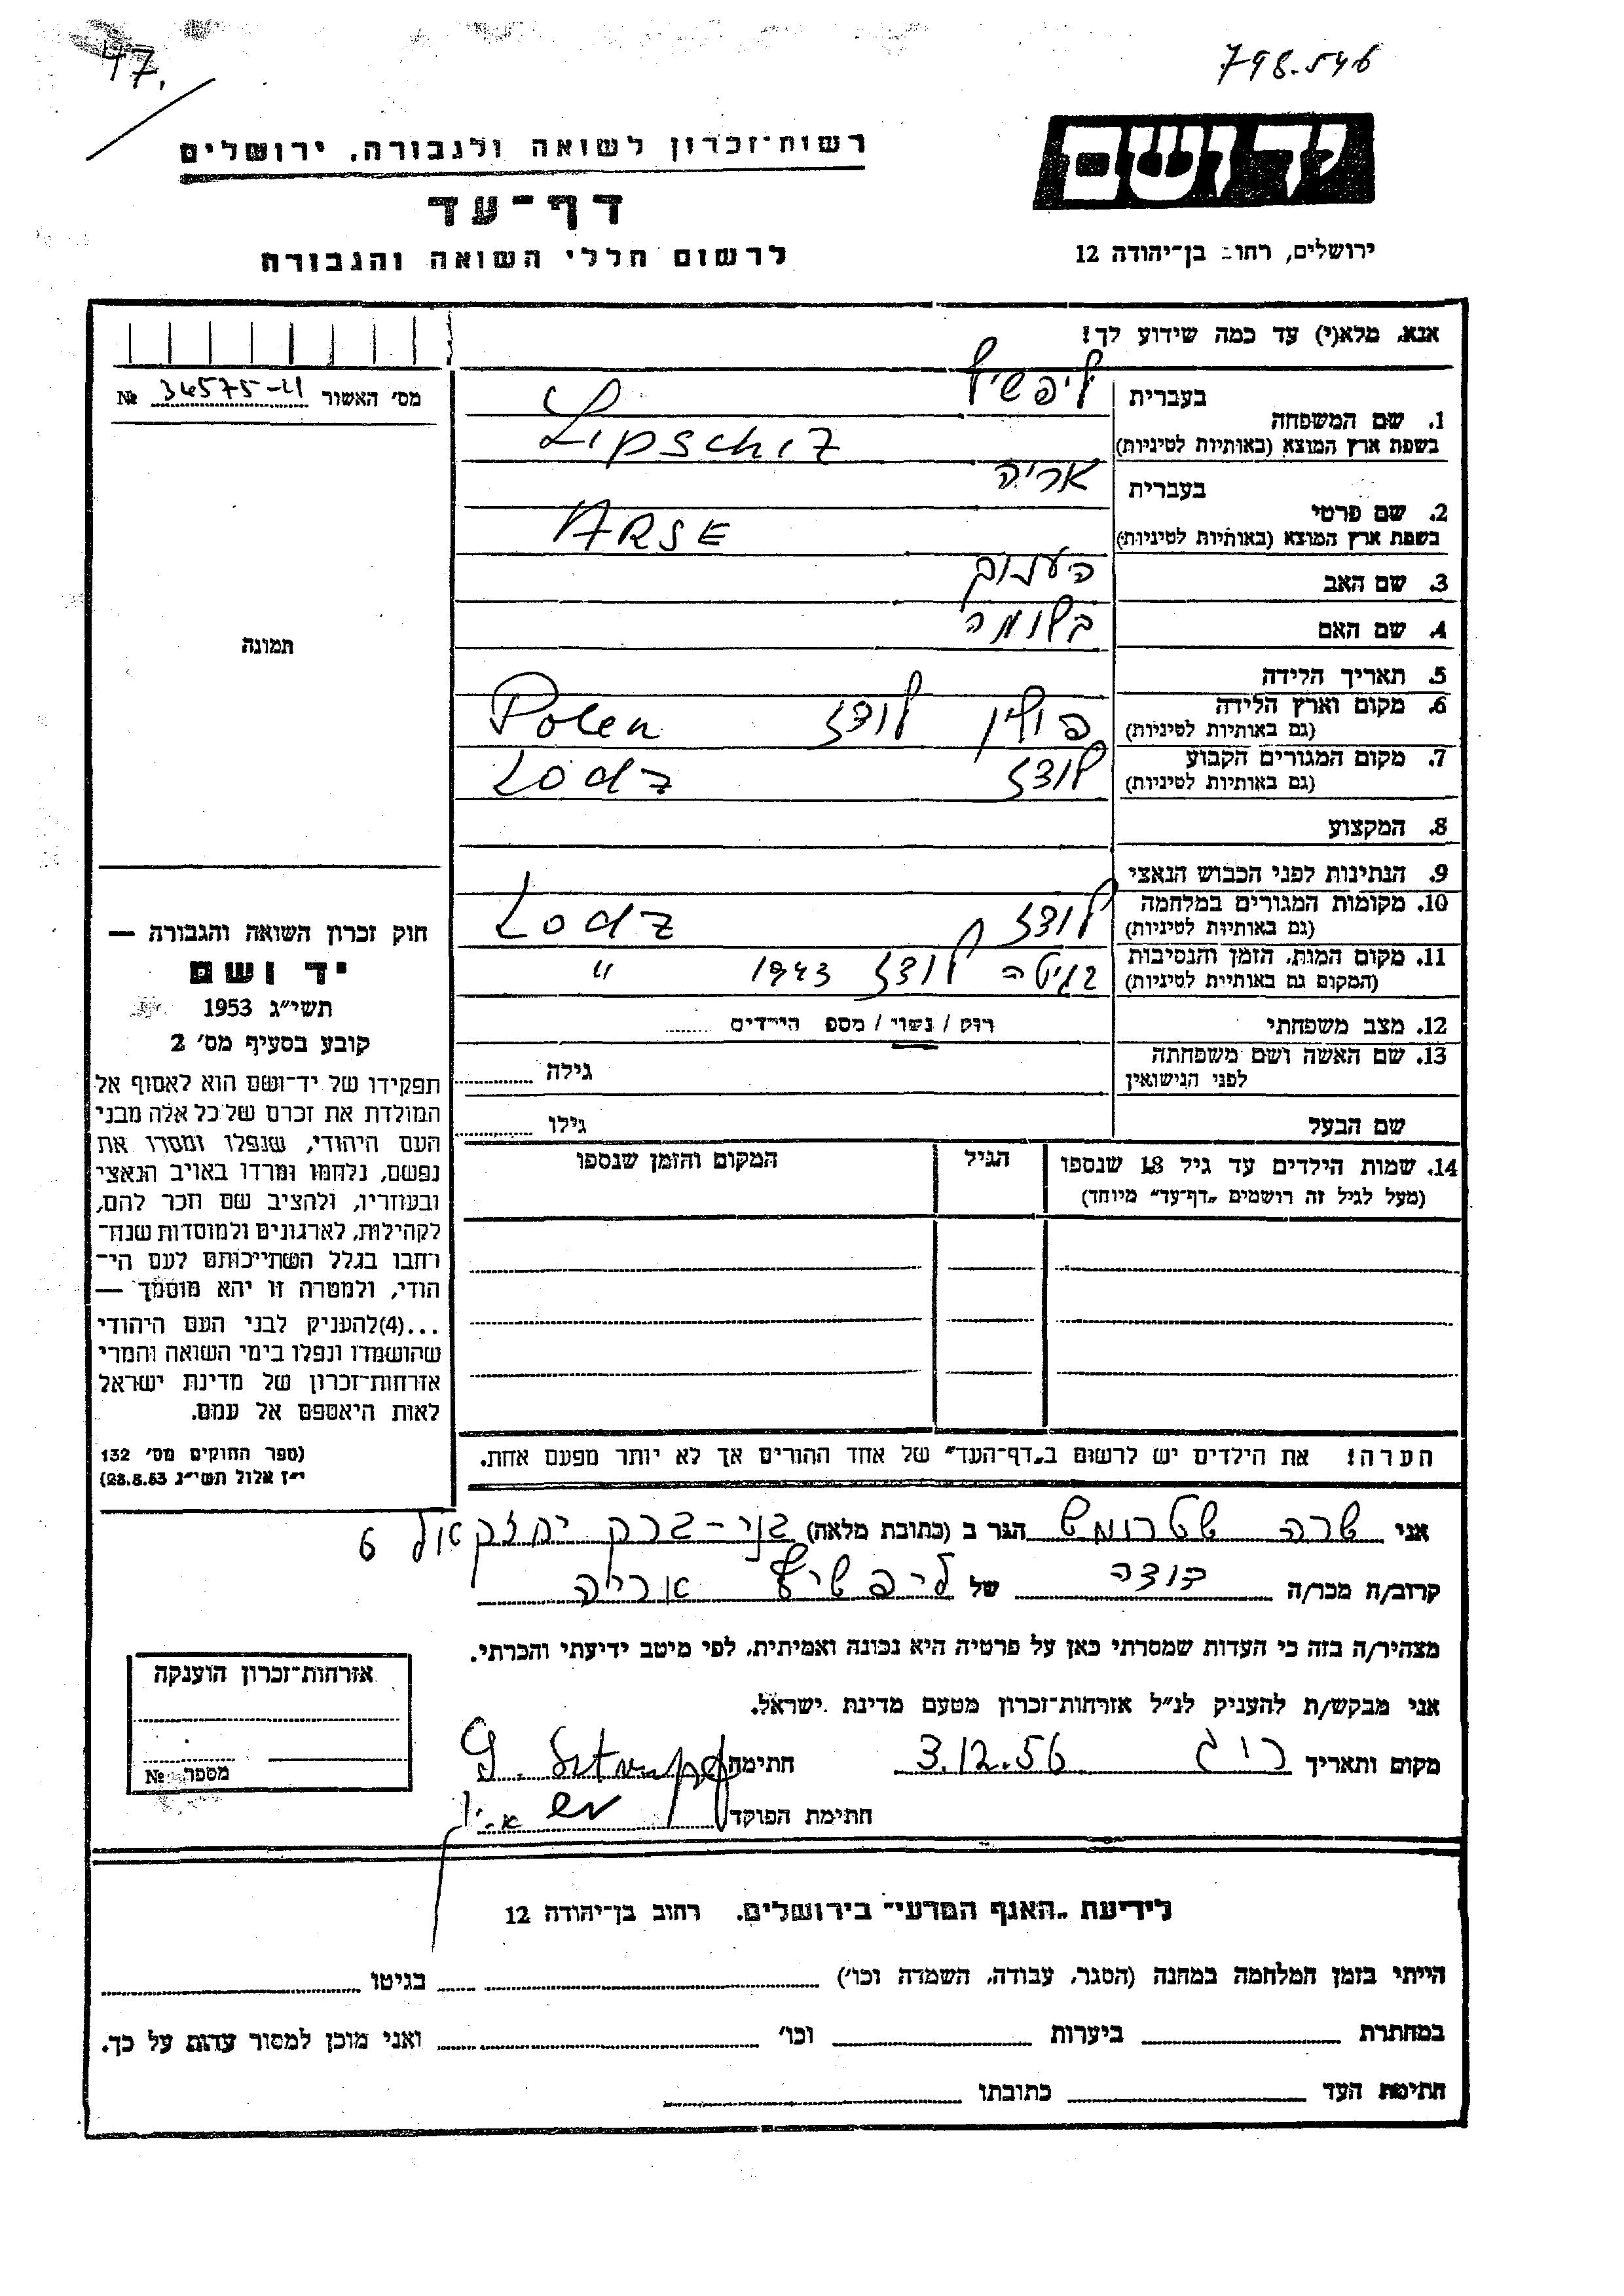 47.
798.546
רשות־זכרון לשואה ולגבורה, ירושלים
יד ושם
דף־עד
לרשום חללי השואה והגבורה
ירושלים, רחוב בן־יהודה 12
אנא, מלא(י) עד כמה שידוע לך!
מס׳ האשור № 34575-
1. שם המשפחה
בעברית ליפשיץ
בשפת ארץ המוצא (באותיות לטיניות) Lipschiz
2. שם פרטי
בעברית אריה
בשפת ארץ המוצא (באותיות לטיניות) ARSE
3. שם האב
4. שם האם בלומה
תמונה
5. תאריך הלידה
6. מקום וארץ הלידה
(גם באותיות לטיניות) פולין לודז Polen
7. מקום המגורים הקבוע
(גם באותיות לטיניות) לודז Lodz
8. המקצוע
9. הנתינות לפני הכבוש הנאצי
10. מקומות המגורים במלחמה
(גם באותיות לטיניות) לודז Lodz
11. מקום המות, הזמן והנסיבות
(המקום גם באותיות לטיניות) בגיטה לודז 1943 "
12. מצב משפחתי רווק / נשוי / מספ הילדים
13. שם האשה ושם משפחתה
לפני הנישואין גילה
שם הבעל גילו
14. שמות הילדים עד גיל 18 שנספו
(מעל לגיל זה רושמים „דף־עד" מיוחד)
הגיל
המקום והזמן שנספו
הערה! את הילדים יש לרשום ב„דף־העד" של אחד ההורים אך לא יותר מפעם אחת.
חוק זכרון השואה והגבורה —
יד ושם
תשי״ג 1953
קובע בסעיף מס׳ 2
תפקידו של יד־ושם הוא לאסוף אל
המולדת את זכרם של כל אלה מבני
העם היהודי, שנפלו ומסרו את
נפשם, נלחמו ומרדו באויב הנאצי
ובעוזריו, ולהציב שם וזכר להם,
לקהילות, לארגונים ולמוסדות שנח־
רבו בגלל השתייכותם לעם הי־
הודי, ולמטרה זו יהא מוסמך —
...(4)להעניק לבני העם היהודי
שהושמדו ונפלו בימי השואה והמרי
אזרחות־זכרון של מדינת ישראל
לאות היאספם אל עמם.
(ספר החוקים מס׳ 132
י״ז אלול תשי״ג 28.8.53)
אני שרה שטרומפ הגר ב (כתובת מלאה) בני-ברק יחזקאל 6
קרוב/ה מכר/ה דודה של ליפשיץ אריה
מצהיר/ה בזה כי העדות שמסרתי כאן על פרטיה היא נכונה ואמיתית, לפי מיטב ידיעתי והכרתי.
אני מבקש/ת להעניק לנ״ל אזרחות־זכרון מטעם מדינת ישראל.
מקום ותאריך 3.12.56 חתימה
חתימת הפוקד
אזרחות־זכרון הוענקה
מספר №
לידיעת „האגף המדעי" בירושלים, רחוב בן־יהודה 12
הייתי בזמן המלחמה במחנה (הסגר, עבודה, השמדה וכו׳) בגיטו
במחתרת ביערות וכו׳ ואני מוכן למסור עדות על כך.
חתימת העד כתובתו